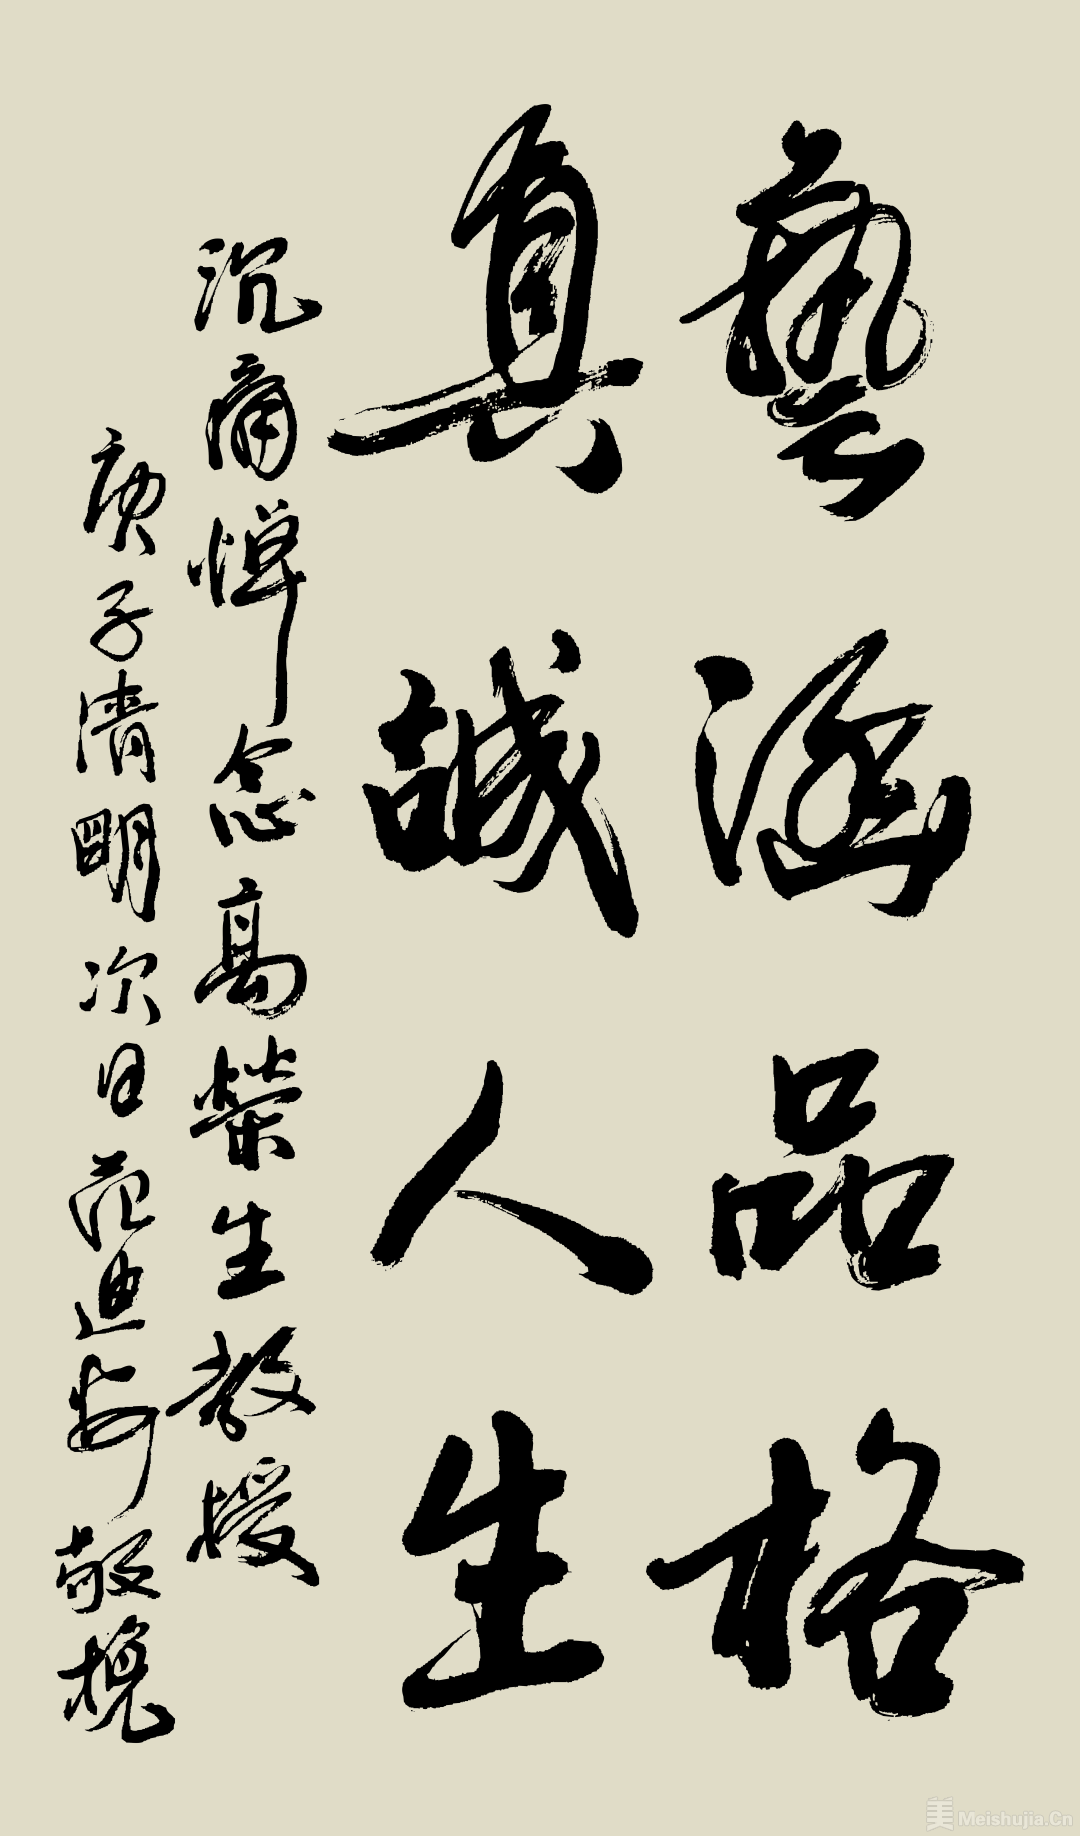 藝涵品格
真誠人生
沉痛悼念高榮生教授
庚子清明次日范迪安敬挽
美 Meishujia.Cn